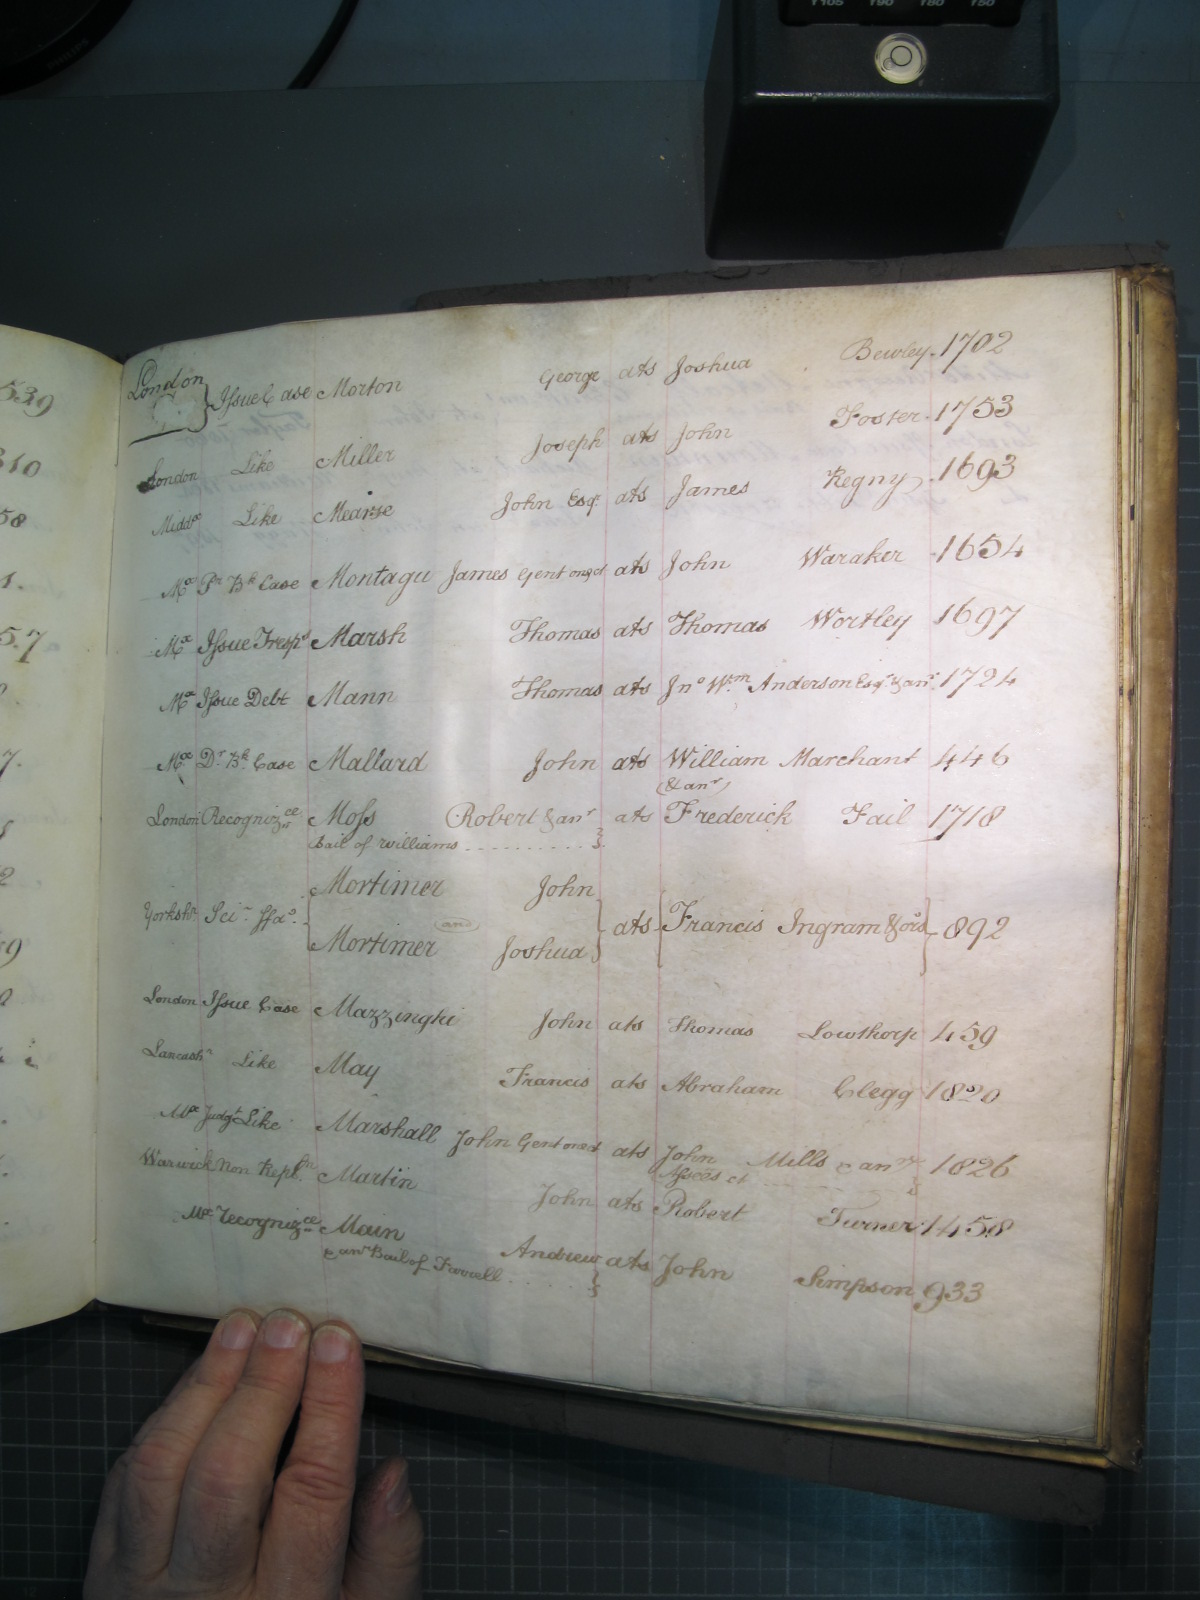 T105 T90 T80 T50
PHILIPS
539
310
58
London } Issue Case Morton George ats Joshua Bewley 1702
London Like Miller Joseph ats John Foster 1753
Middx Like Mearse John Esqr ats James Regny 1693
Mx Pr Bk Case Montagu James Gent one &c ats John Waraker 1654
Mx Issue Tresps Marsh Thomas ats Thomas Wortley 1697
Mx Issue Debt Mann Thomas ats Jno Wm Anderson Esqr & anr 1724
Mx Dr Bk Case Mallard John ats William Marchant 446
(& anr)
London Recognizce Moss Robert & anr ats Frederick Fail 1718
Bail of Williams
Mortimer John
Yorkshr Sci Ffas and ats Francis Ingram & ors 892
Mortimer Joshua
London Issue Case Mazzinghi John ats Thomas Lowthorp 459
Lancashr Like May Francis ats Abraham Clegg 1820
Mx Judgt Like Marshall John Gent one &c ats John Mills & anr 1826
Assees &c
Warwick Non Repl Martin John ats Robert Turner 1458
Mx Recognizce Main Andrew ats John Simpson 933
& anr Bail of Farrell